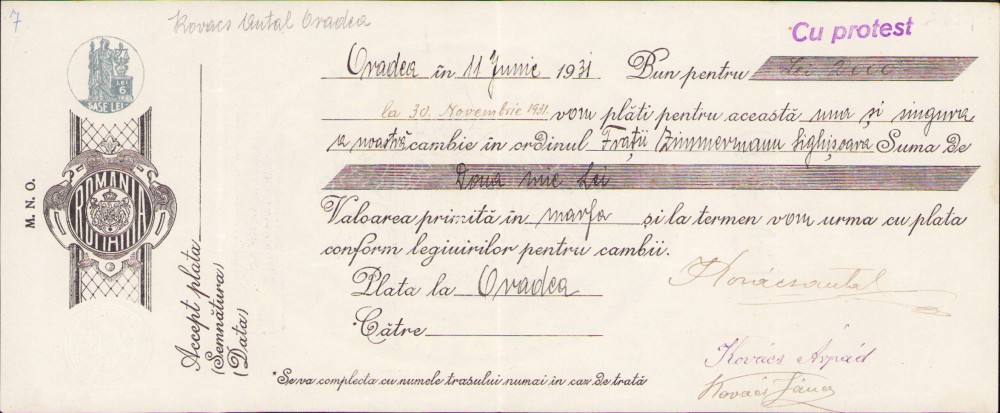 7
Kovacs Antal Oradea
Cu protest
LEI
6
ȘASE LEI
M. N. O.
ROMANIA
Accept plata
(Semnătura)
(Data)
Oradea în 11 Junie 1931 Bun pentru Lei 2000
la 30. Novembrie 1931. vom plăti pentru această una și singura
a noastră cambie în ordinul Frații Zimmermann Sighișoara Suma de
Doua mie Lei
Valoarea primită în marfa și la termen vom urma cu plata
conform legiuirilor pentru cambii.
Plata la Oradea
*Către
Kovács Antal
Kovács Árpád
Kovács János
*Se va complecta cu numele trasului numai în caz de trată